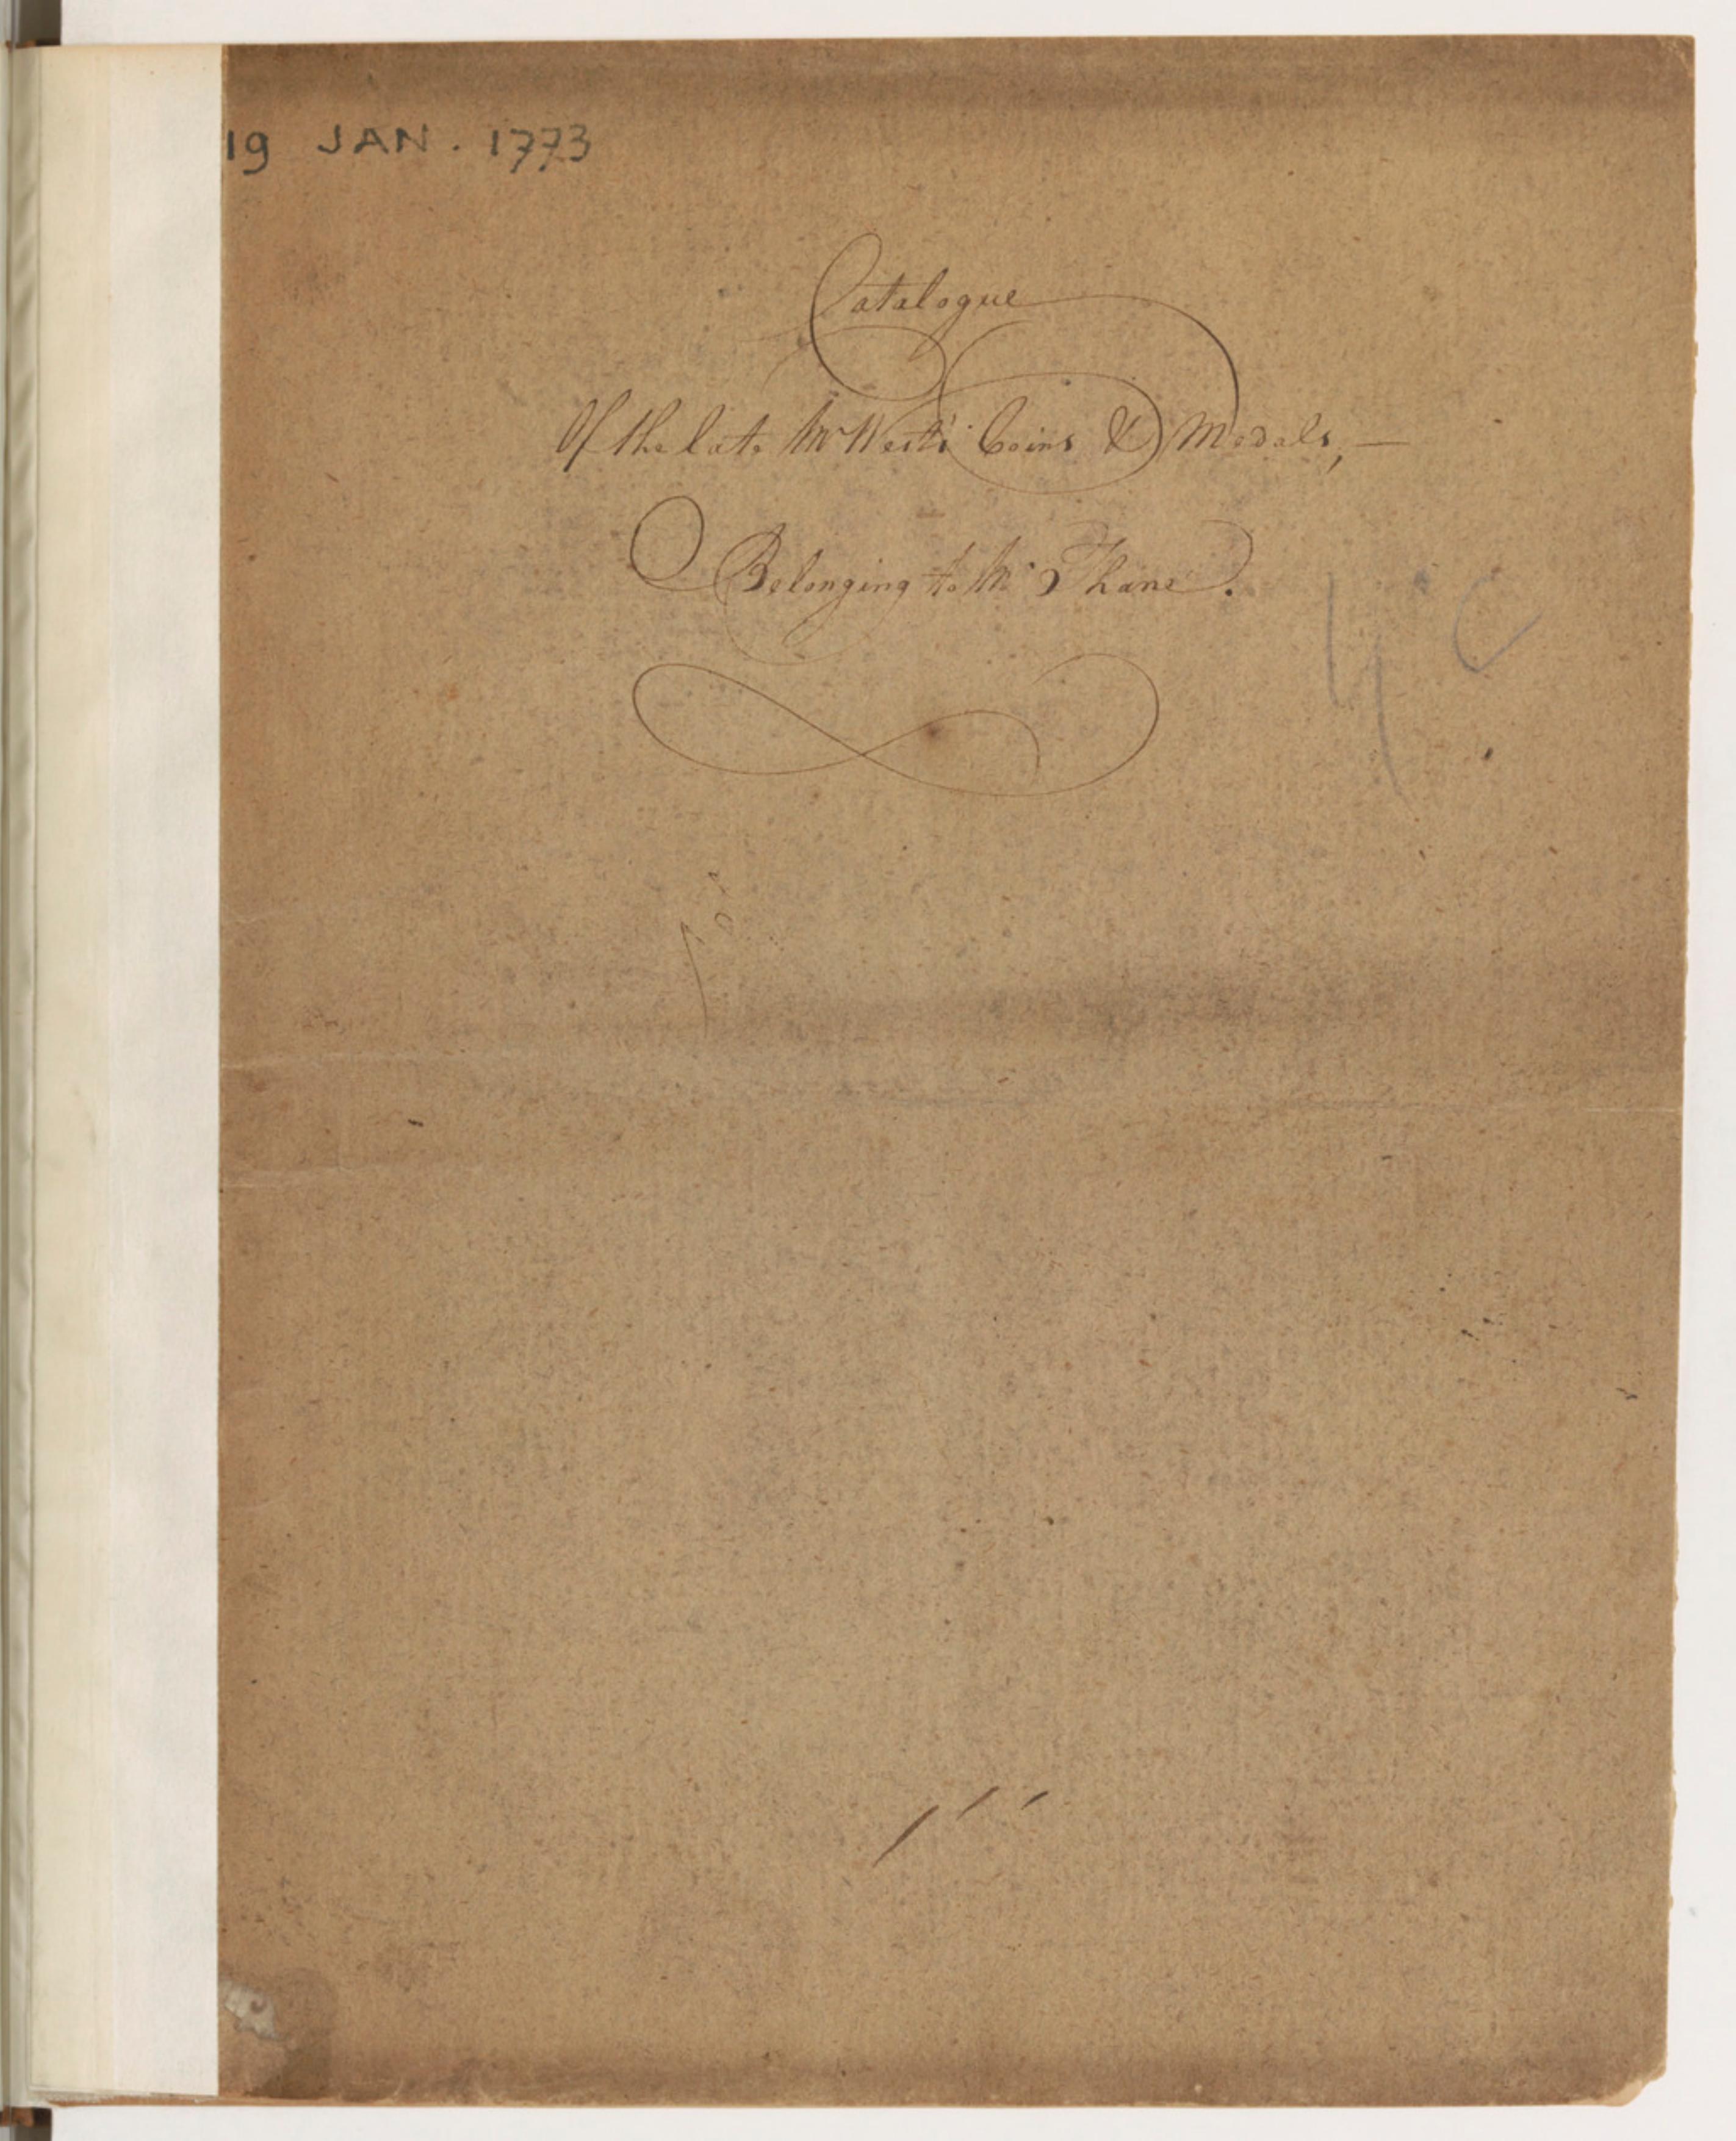 19 JAN. 1773
Catalogue
Of the late Mr West's Coins & Medals, —
Belonging to Mr Thane.